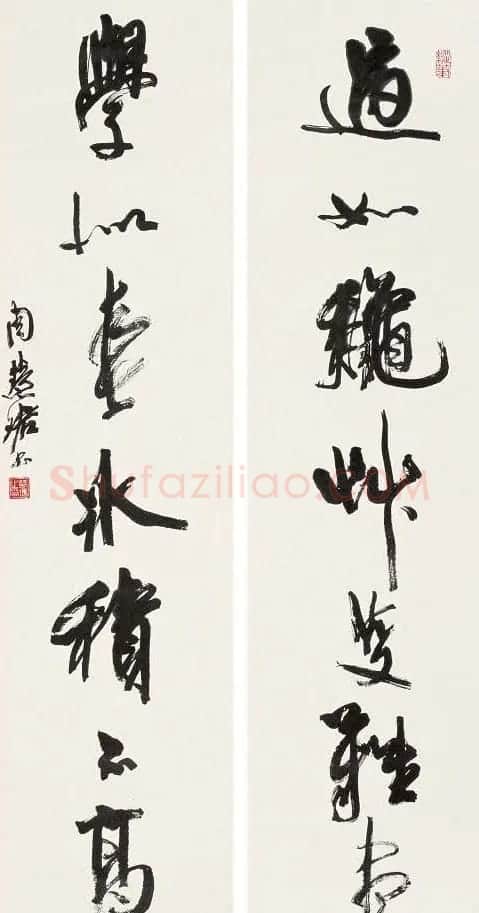 過如龝艸芟難盡
學似春冰積不高
周慧珺書
Shufaziliao.COM